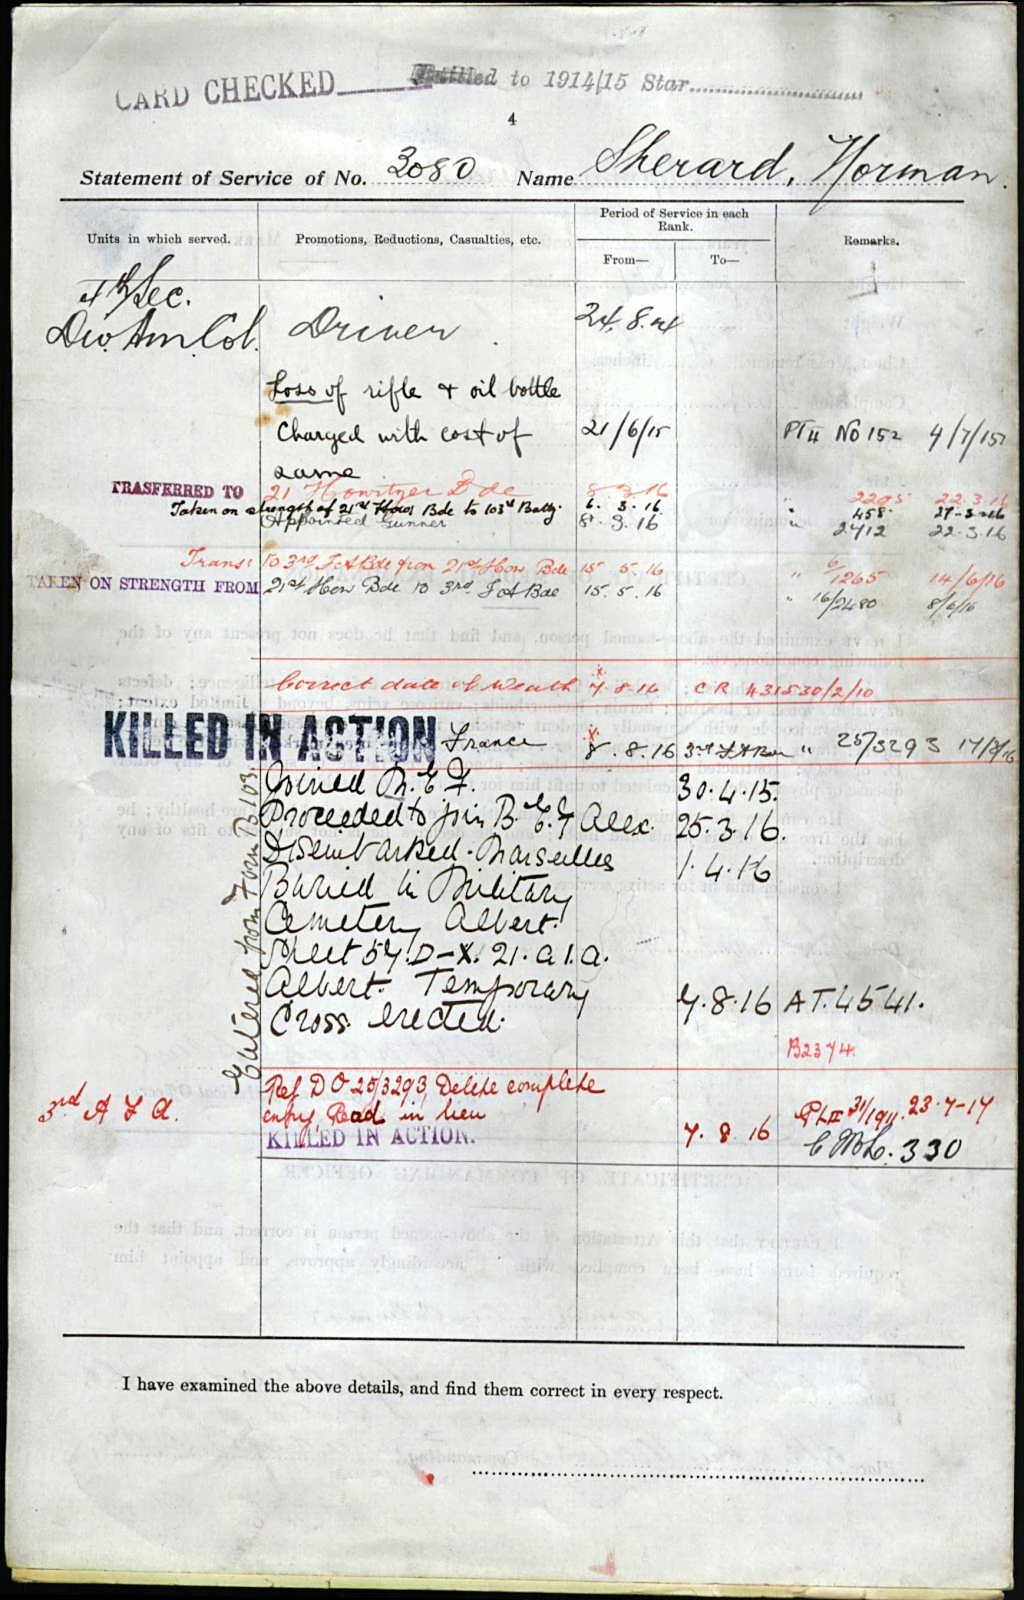 CARD CHECKED
Entitled to 1914/15 Star
4
Statement of Service of No. 3080 Name Sherard, Norman
Units in which served.
Promotions, Reductions, Casualties, etc.
Period of Service in each Rank.
From—
To—
Remarks.
4th Sec.
Div. Am. Col. Driver 24.8.14
Loss of rifle & oil bottle
Charged with cost of 21/6/15 Pt II No 152 4/7/15
same
TRASFERRED TO 21 Howitzer Bde 8 3 16 " 2295 22.3.16
Taken on strength of 21st How Bde to 103rd Batty. 6. 3. 16 " 458 27-3-16
Appointed Gunner 8. 3. 16 " 2412 22.3.16
Trans: to 3rd FABde from 21st How Bde 15 5. 16 " 6/1265 14/6/16
TAKEN ON STRENGTH FROM 21st How Bde to 3rd FA Bde 15. 5. 16 " 16/2480 8/6/16
Correct date of death 7.8.16 CR 431530/2/10
KILLED IN ACTION France 8.8.16 3rd FA Bde " 25/3293
Entered from Form B.103.
Joined M.E.F. 30.4.15.
Proceeded to join B.E.F Alex. 25.3.16.
Disembarked. Marseilles 1.4.16
Buried in Military
Cemetery Albert.
Sheet 57.D-X. 21. a 1. a.
Albert. Temporary
Cross erected. 7.8.16 A T. 4541.
B2374
Ref D O 25/3293 Delete complete
3rd A F A. entry, Read in lieu
KILLED IN ACTION. 7. 8 16 Pt II 31/1911. 23-7-17
330
I have examined the above details, and find them correct in every respect.